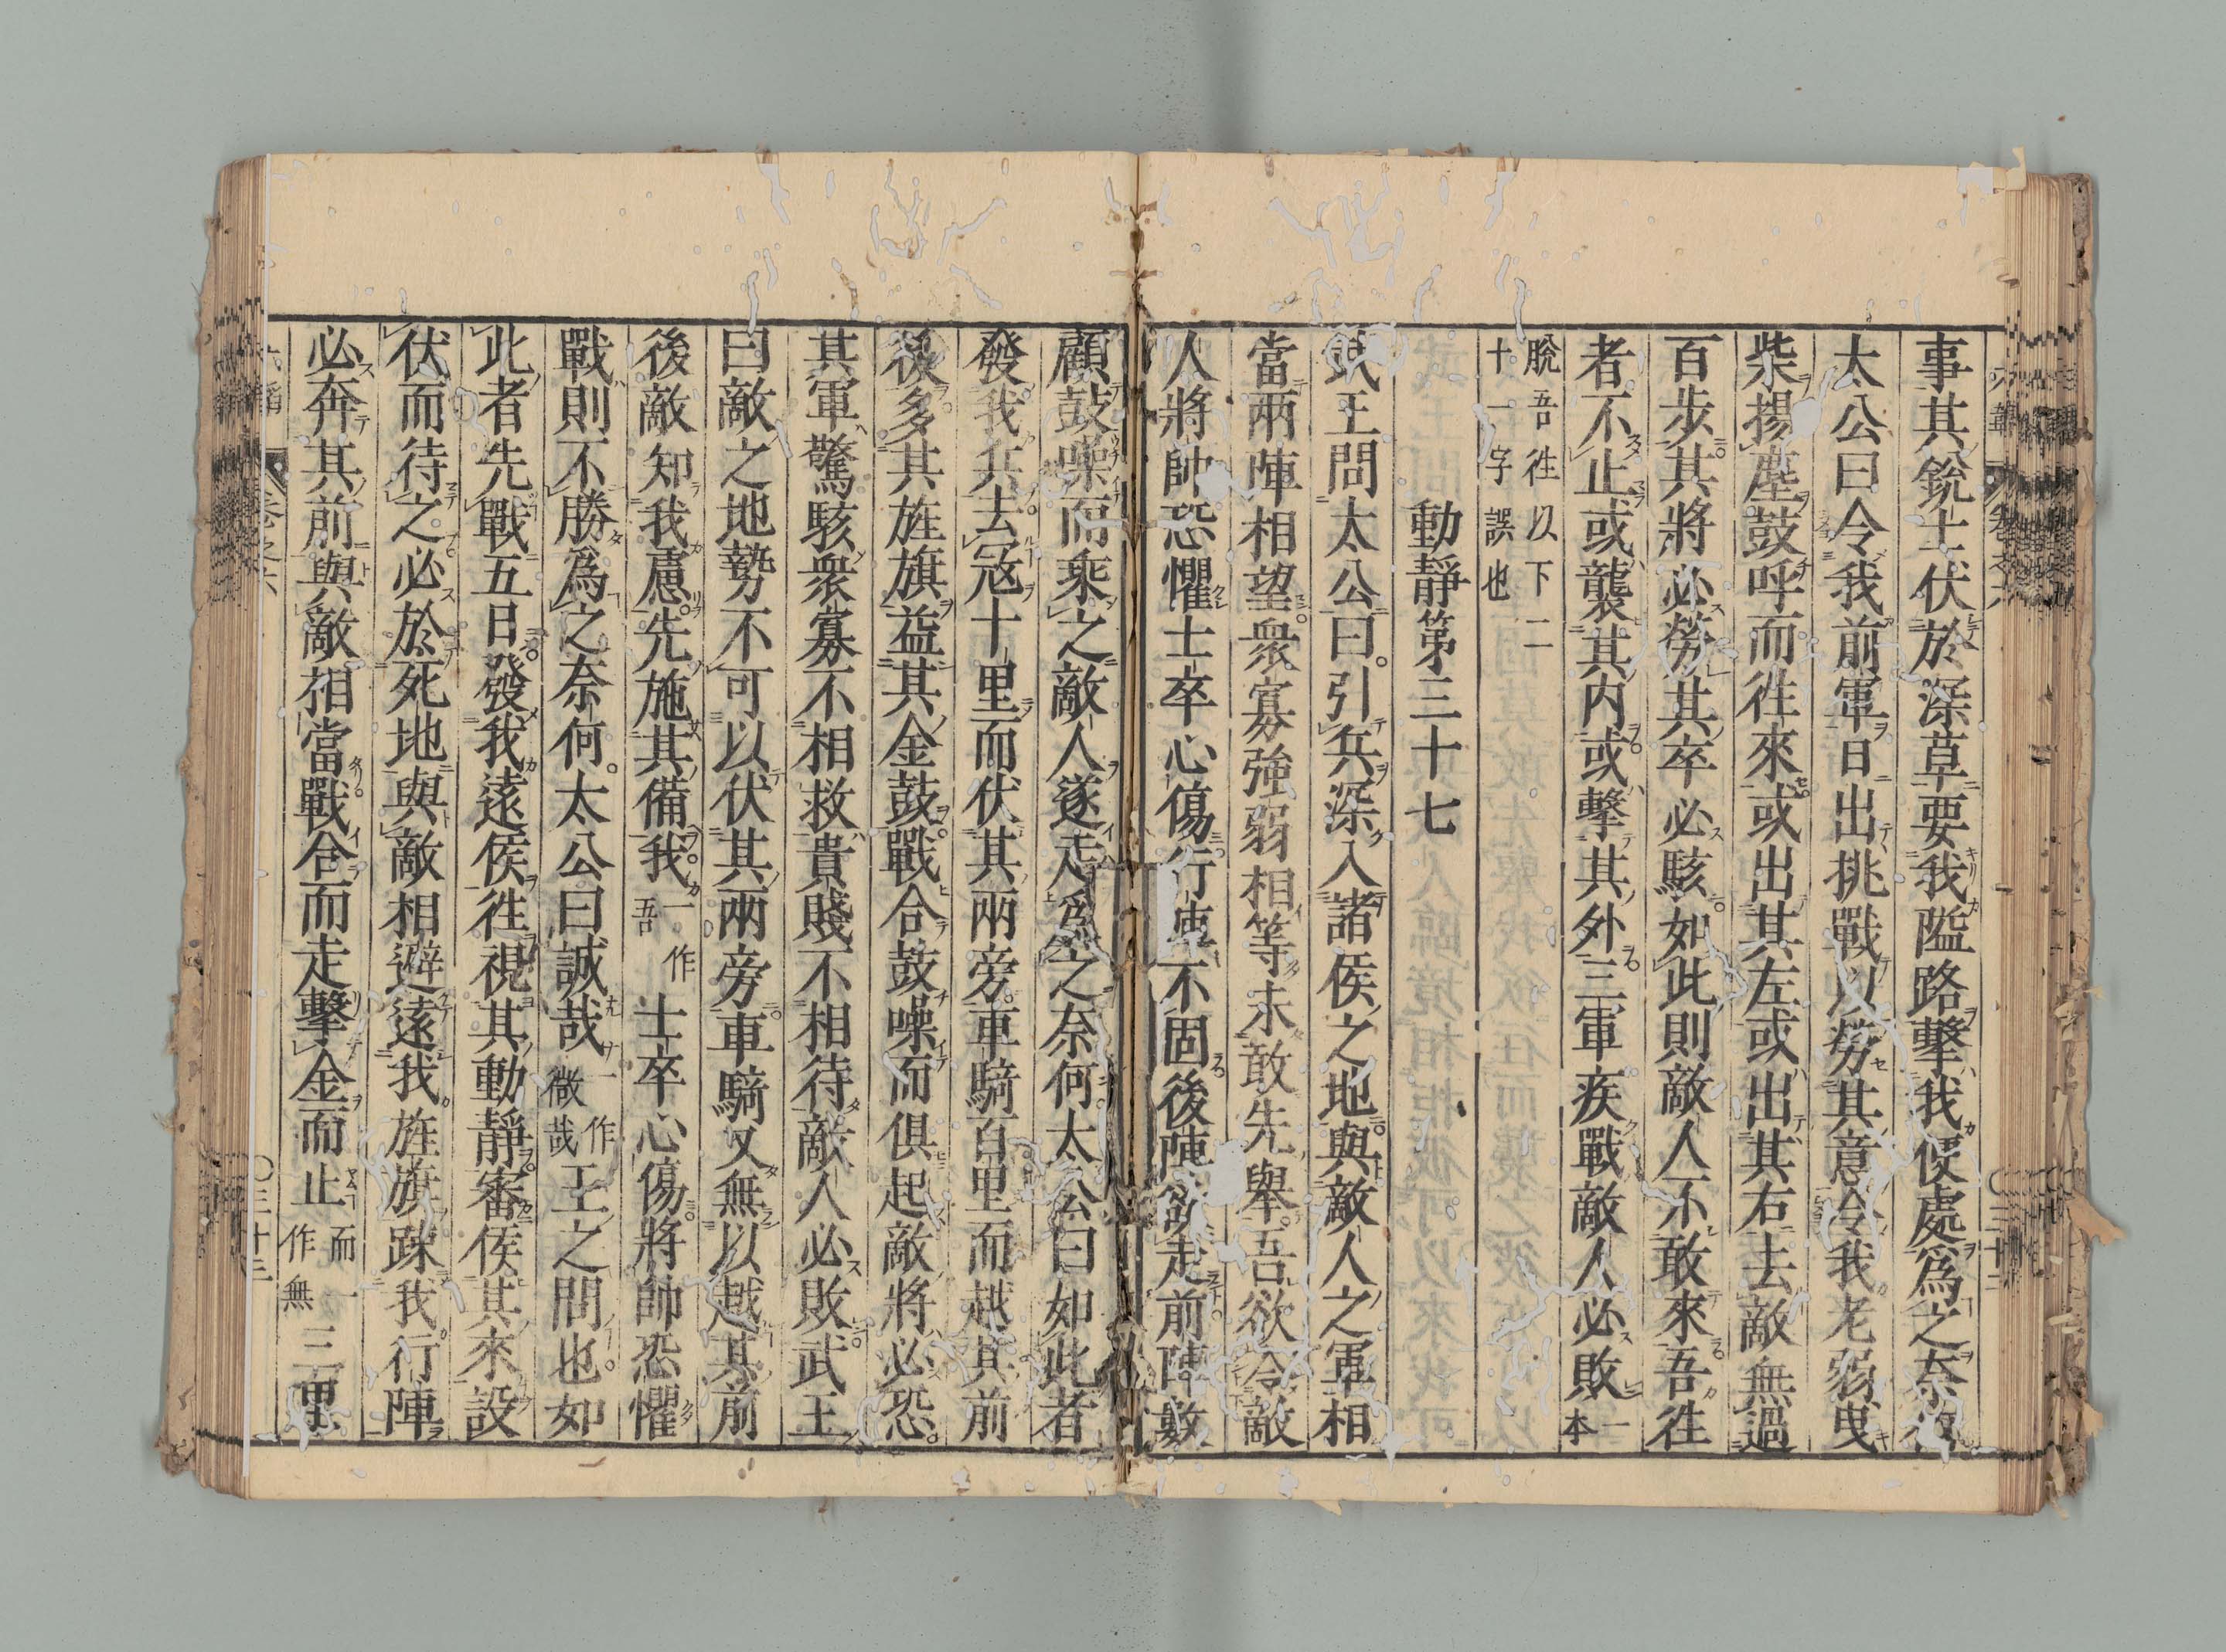 事其銳士伏於深草要我隘路擊我便處爲之奈
太公曰令我前軍日出挑戰以勞其意令我老弱曳
柴揚塵鼓呼而徃來或出其左或出其右去敵無過
百步其將必勞其卒必駭如此則敵人不敢來吾徃
者不止或襲其内或擊其外三軍疾戰敵人必敗一本
脫吾徃以下二
十一字誤也
動靜第三十七
武王問太公曰引兵深入諸侯之地與敵人之軍相
當兩陣相望衆寡強弱相等未敢先舉吾欲令敵
人將帥恐懼士卒心傷行陣不固後陣欲走前陣數
顧鼓噪而乘之敵人遂走爲之奈何太公曰如此者
發我兵去冦十里而伏其兩旁車騎百里而越其前
後多其旌旗益其金鼓戰合鼓噪而俱起敵將必恐
其軍驚駭衆寡不相救貴賤不相待敵人必敗武王
曰敵之地勢不可以伏其兩旁車騎又無以越其前
後敵知我慮先施其備我一作吾士卒心傷將帥恐懼
戰則不勝爲之奈何太公曰誠哉一作微哉王之問也如
此者先戰五日發我遠侯徃視其動靜審侯其來設
伏而待之必於死地與敵相避遠我旌旗踈我行陣
必奔其前與敵相當戰合而走擊金而止而一作無三里